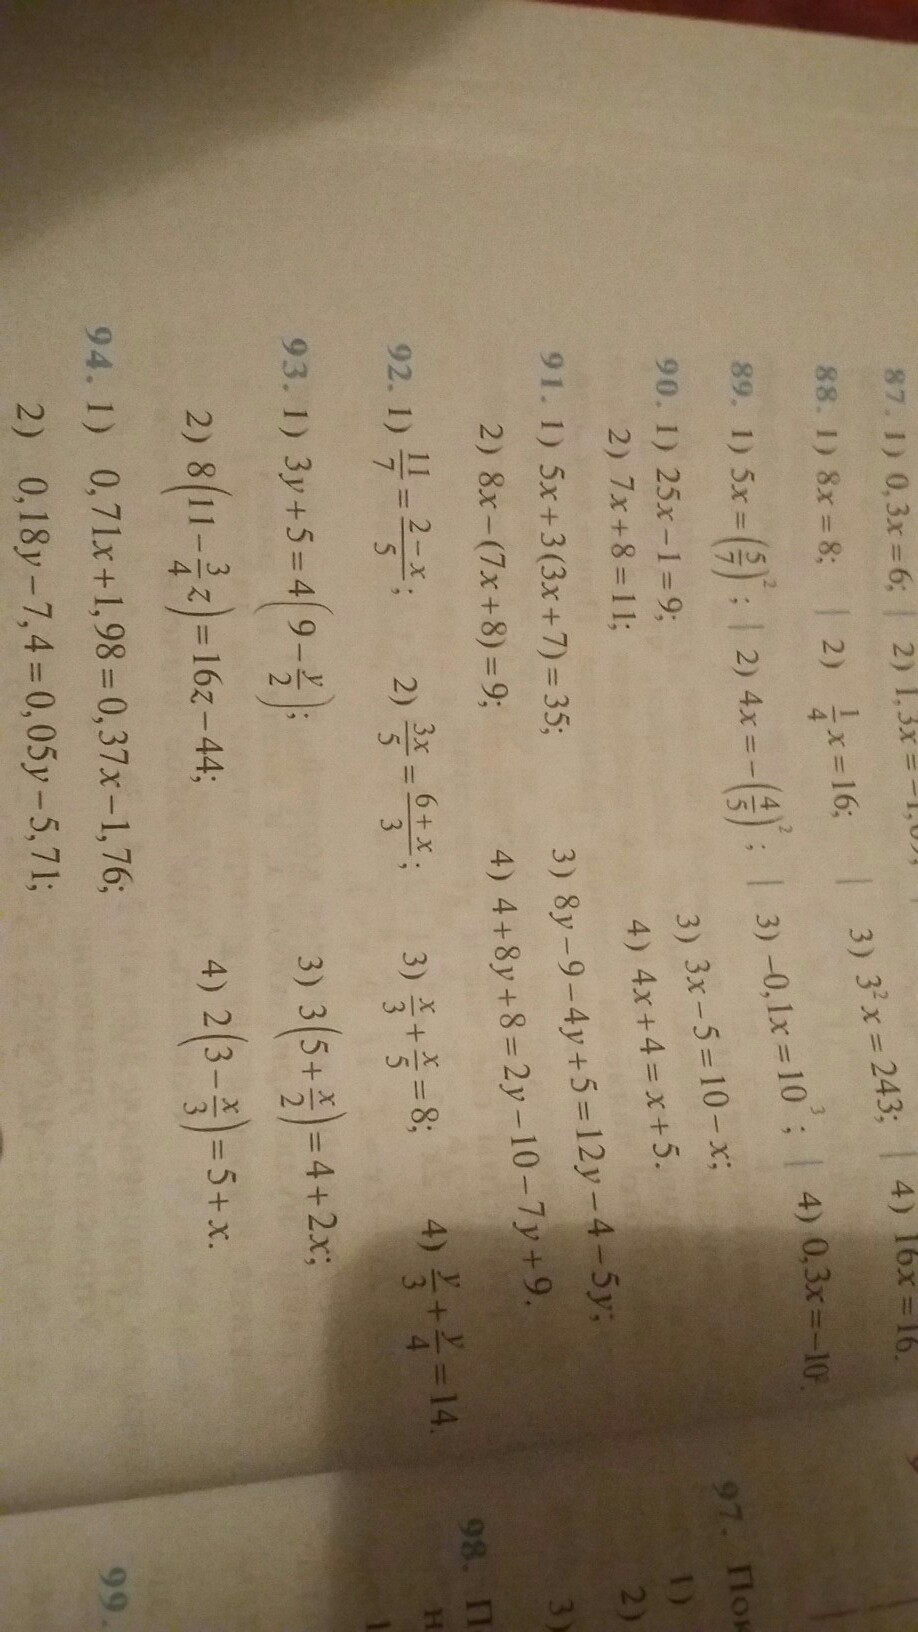 87. 1) 0,3x=6; | 2) 1,3x= | 4) 16x=16.
88. 1) 8x=8; | 2) 1/4 x=16; | 3) 3² x=243;
89. 1) 5x=(5/7)²; | 2) 4x=-(4/5)²; | 3) -0,1x=10³; | 4) 0,3x=-10².
90. 1) 25x-1=9; 3) 3x-5=10-x;
2) 7x+8=11; 4) 4x+4=x+5.
91. 1) 5x+3(3x+7)=35; 3) 8y-9-4y+5=12y-4-5y;
2) 8x-(7x+8)=9; 4) 4+8y+8=2y-10-7y+9.
92. 1) 11/7=(2-x)/5; 2) 3x/5=(6+x)/3; 3) x/3+x/5=8; 4) y/3+y/4=14.
93. 1) 3y+5=4(9-y/2); 3) 3(5+x/2)=4+2x;
2) 8(11-3/4 z)=16z-44; 4) 2(3-x/3)=5+x.
94. 1) 0,71x+1,98=0,37x-1,76;
2) 0,18y-7,4=0,05y-5,71;
97.
1)
2)
3)
98. П
н
1
99.